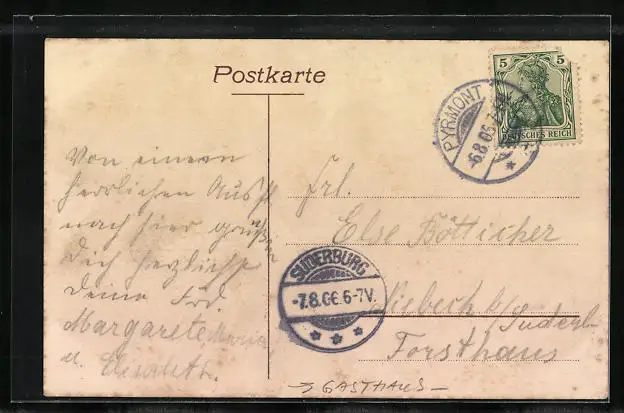 Postkarte
5 5
DEUTSCHES REICH
PYRMONT
6.8.06.
Von einem
herrlichen Ausfl
nach hier grüßen
Dich herzlichst
Deine
Margarete, Maria
u.
Frl.
Else Bötticher
SUDERBURG
-7.8.06.6-7V.
Niebeck b/
Suderb
Forsthaus
→ GASTHAUS -